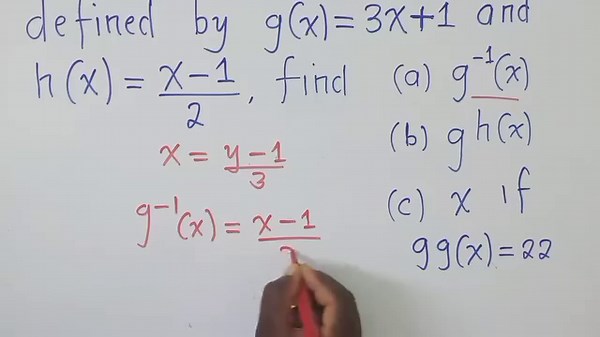 defined by g(x)=3x+1 and
h(x) = x-1/2, find (a) g⁻¹(x)
(b) gh(x)
(c) x if
gg(x)=22
x = y-1/3
g⁻¹(x) = x-1